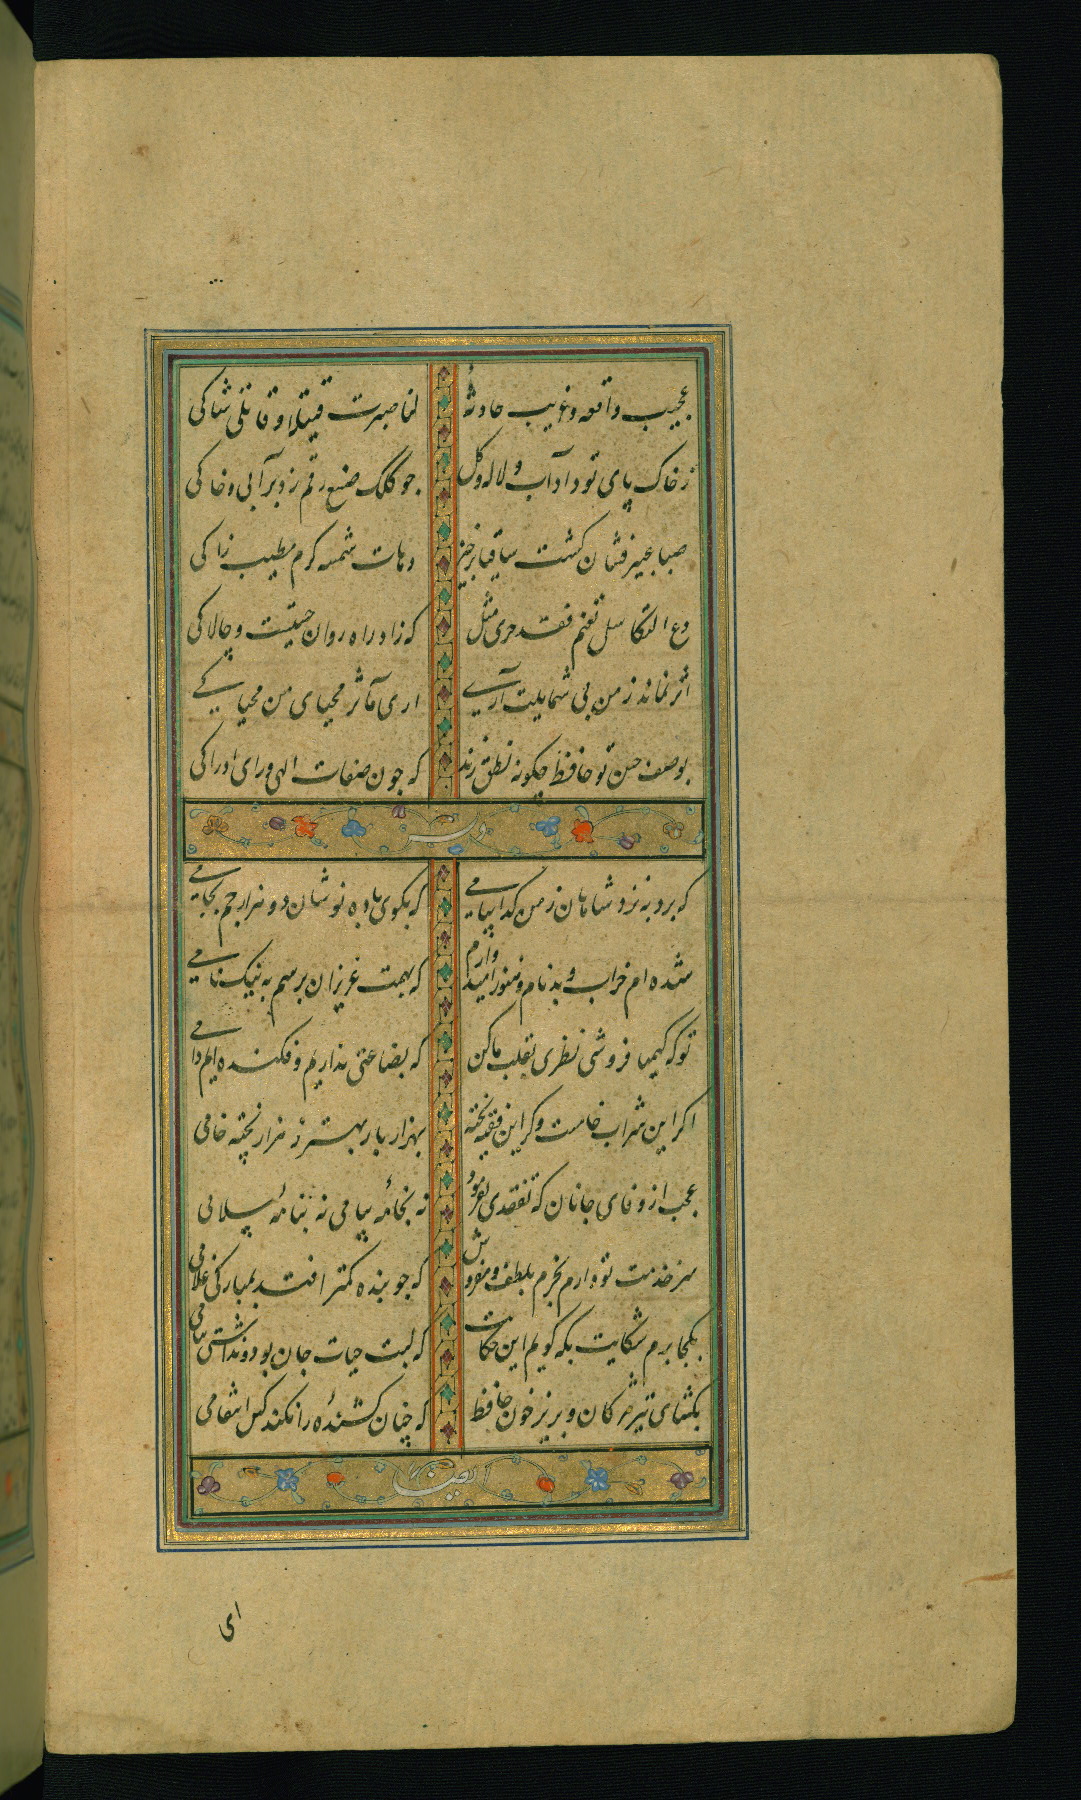 عجیب واقعه و غریب حادثهٔ
انا صبرت قتیلا و قاتلی شاکی
ز خاک پای تو داد آب و لاله و گل
جو کلک صنع رقم زد بر آبی و خاکی
صبا عبیر فشان کشت ساقیا برخیز
وهات شمسه کرم مطیب زاکی
دع التکاسل تغنم فقد جری مثل
که زاد راه روان چستیست و چالاکی
اثر نماند ز من بی شمایلت آری
اری مآثر محیای من محیاکی
بوصف حسن تو حافظ چکونه نطق زند
که جون صفات الهی ورای ادراکی
که برد به نزد شاهان ز من کدا پیامی
که بکوی باده نوشان دو هزار جم بجامی
شده ام خراب و بدنام و هنوز امید وارم
که بهمت عزیزان برسم به نیک نامی
تو که کیمیا فروشی نظری بقلب ما کن
که بضاعتی نداریم و فکنده ایم دامی
اکر این شراب خامست و کر این فقیه پخته
بهزار بار بهتر ز هزار پخته خامی
عجب از وفای جانان که تفقدی نفرمود
نه بخامهٔ پیامی نه بنامهٔ سلامی
سر خدمت تو دارم بخرم بلطف و مفروش
که جو بنده کمتر افتد بمبارکی غلامی
بکجا برم شکایت بکه کویم این حکایت
که لبت حیات جان بود و نداشتی دوامی
بکشای تیر مژکان و بریز خون حافظ
که چنان کشندهٔ را نکند کس انتقامی
ایضا
ای